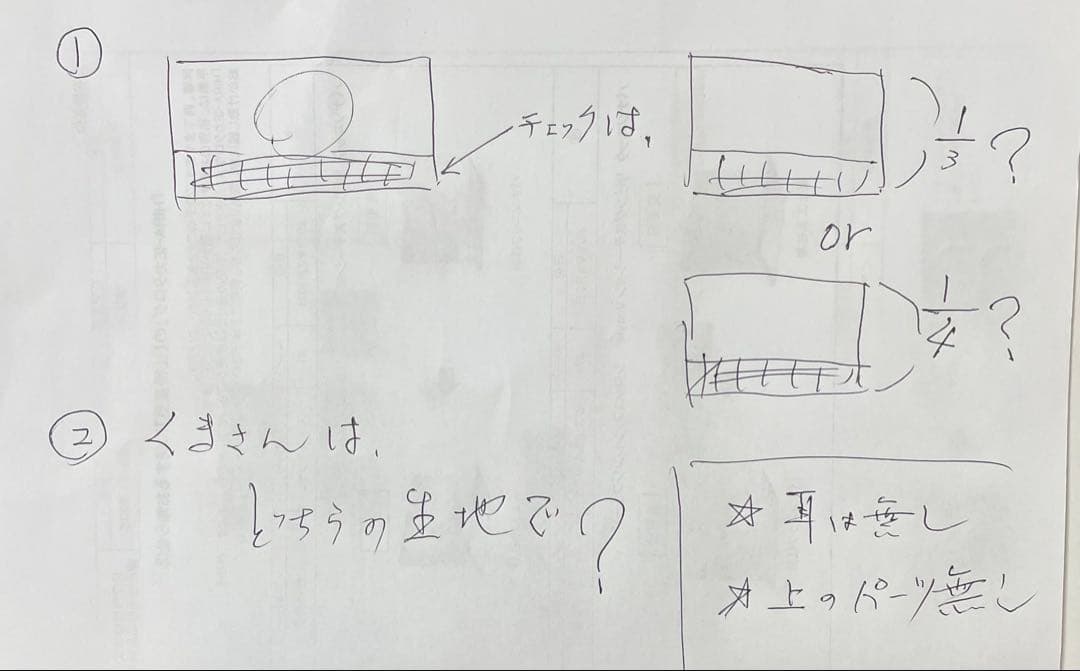 ①
チェックは、
1/3?
or
1/4?
② くまさんは、
どっちらの生地で?
☆耳は無し
☆上のパーツ無し